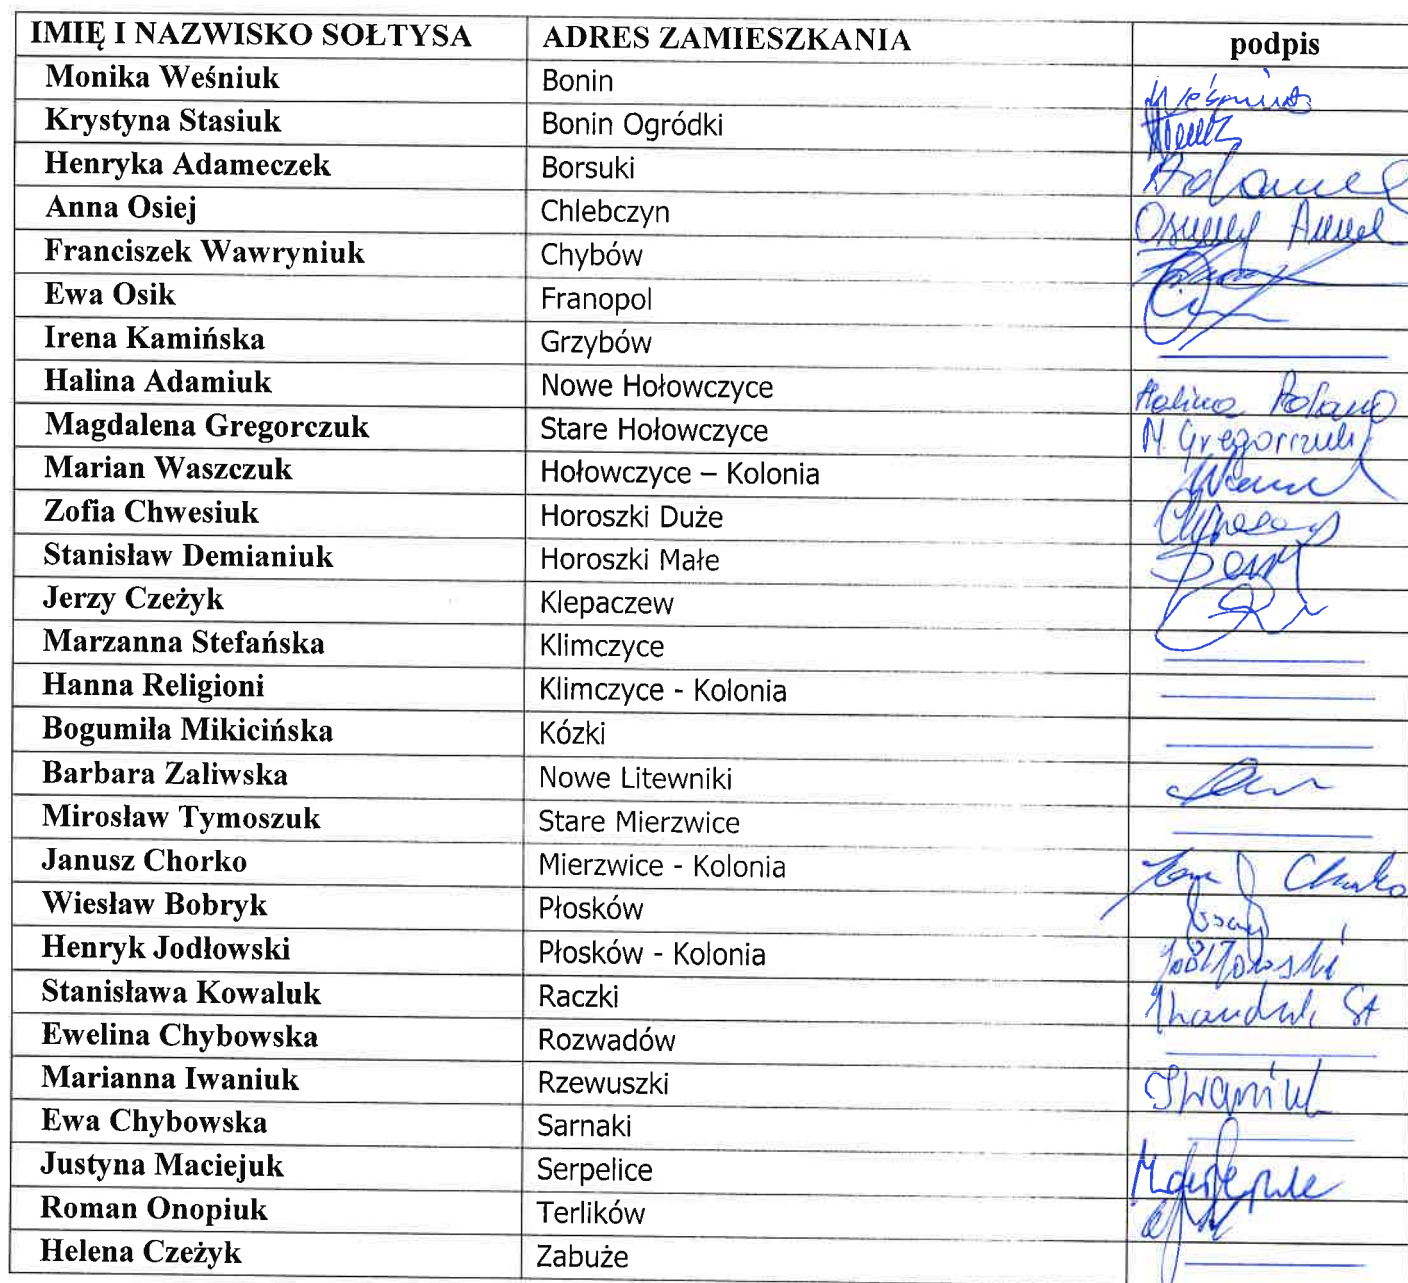 IMIĘ I NAZWISKO SOŁTYSA ADRES ZAMIESZKANIA podpis
Monika Weśniuk Bonin
Krystyna Stasiuk Bonin Ogródki
Henryka Adameczek Borsuki
Anna Osiej Chlebczyn
Franciszek Wawryniuk Chybów
Ewa Osik Franopol
Irena Kamińska Grzybów
Halina Adamiuk Nowe Hołowczyce Halina
Magdalena Gregorczuk Stare Hołowczyce M. Gregorczuk
Marian Waszczuk Hołowczyce – Kolonia
Zofia Chwesiuk Horoszki Duże
Stanisław Demianiuk Horoszki Małe
Jerzy Czeżyk Klepaczew
Marzanna Stefańska Klimczyce
Hanna Religioni Klimczyce - Kolonia
Bogumiła Mikicińska Kózki
Barbara Zaliwska Nowe Litewniki
Mirosław Tymoszuk Stare Mierzwice
Janusz Chorko Mierzwice - Kolonia
Wiesław Bobryk Płosków
Henryk Jodłowski Płosków - Kolonia Jodłowski
Stanisława Kowaluk Raczki St
Ewelina Chybowska Rozwadów
Marianna Iwaniuk Rzewuszki Iwaniuk
Ewa Chybowska Sarnaki
Justyna Maciejuk Serpelice
Roman Onopiuk Terlików
Helena Czeżyk Zabuże